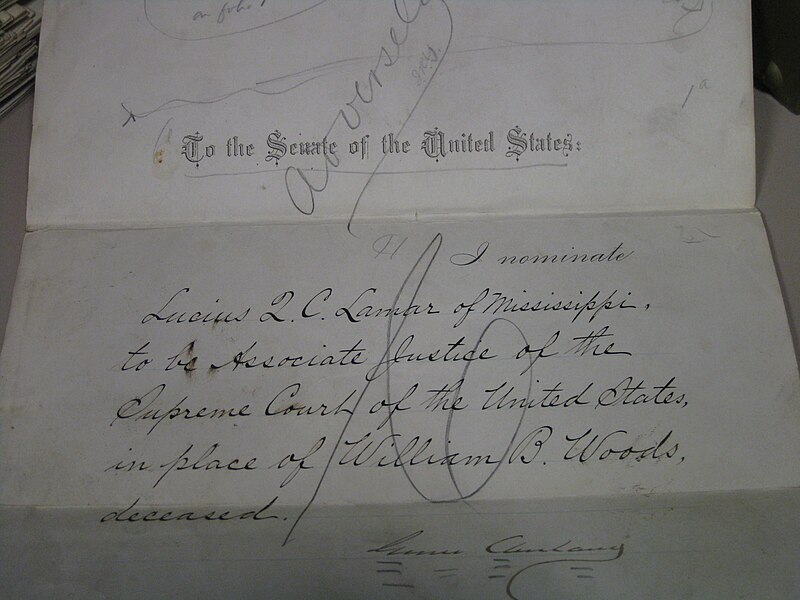 on
adversely
To the Senate of the United States:
I nominate
Lucius Q. C. Lamar of Mississippi,
to be Associate Justice of the
Supreme Court of the United States,
in place of William B. Woods,
deceased.
Grover Cleveland